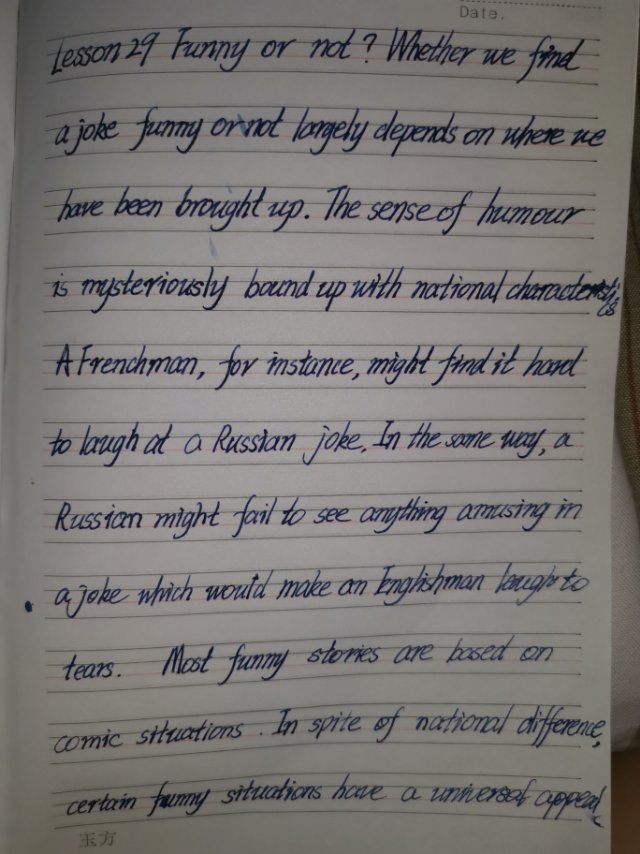 Date.
Lesson 29 Funny or not? Whether we find
a joke funny or not largely depends on where we
have been brought up. The sense of humour
is mysteriously bound up with national characteristics
A Frenchman, for instance, might find it hard
to laugh at a Russian joke. In the same way, a
Russian might fail to see anything amusing in
a joke which would make an Englishman laugh to
tears. Most funny stories are based on
comic situations. In spite of national difference,
certain funny situations have a universal appeal.
玉方